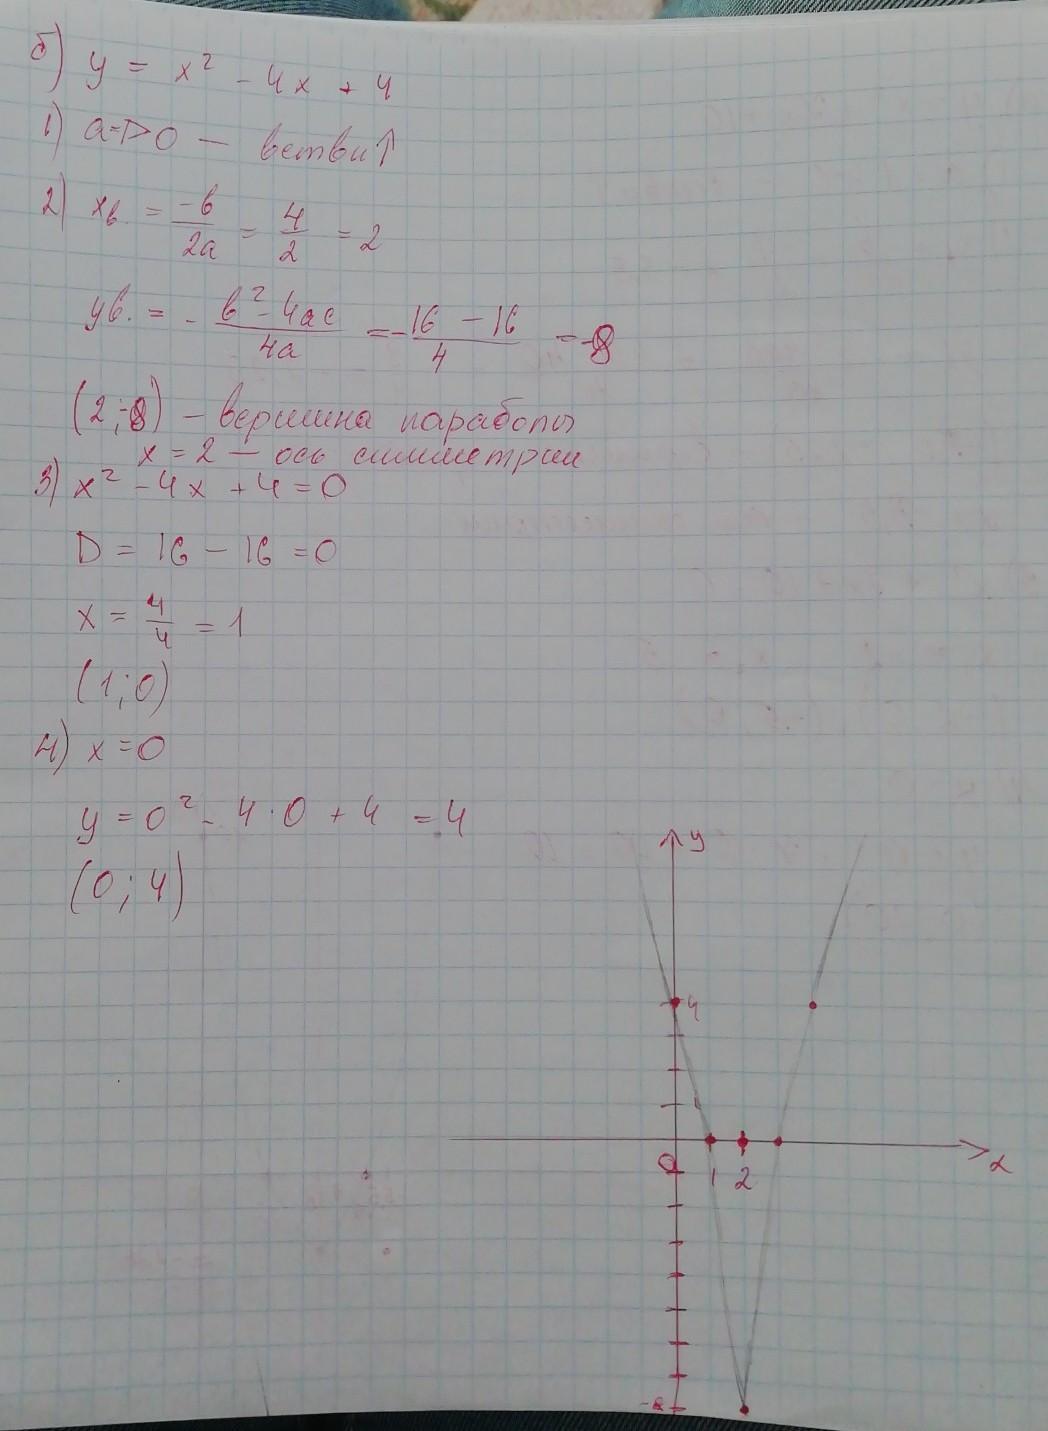 б) y = x² - 4x + 4
1) a=1>0 — ветви↑
2) xв. = -b/2a = 4/2 = 2
yв. = - b²-4ac/4a = -16-16/4 = -8
(2;-8) - вершина параболы
x = 2 — ось симметрии
3) x² - 4x + 4 = 0
D = 16 - 16 = 0
x = 4/4 = 1
(1;0)
4) x = 0
y = 0² - 4·0 + 4 = 4
(0; 4)
y
4
0 1 2 x
-8